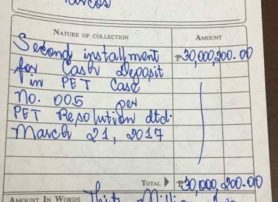 NATURE OF COLLECTION AMOUNT
Second installment ₱30,000,200.00
for Cash Deposit
in PET Case
No. 005 per
PET Resolution dtd.
March 21, 2017
TOTAL ₱30,000,200.00
AMOUNT IN WORDS Thirty Million